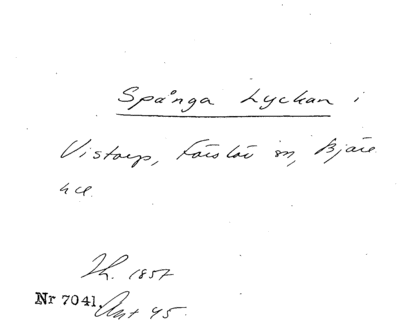 Spånga Lyckan i
Vistorp, Förslöv sn, Bjäre
hd.
Th. 1857
Nr 7041. Ant 45.